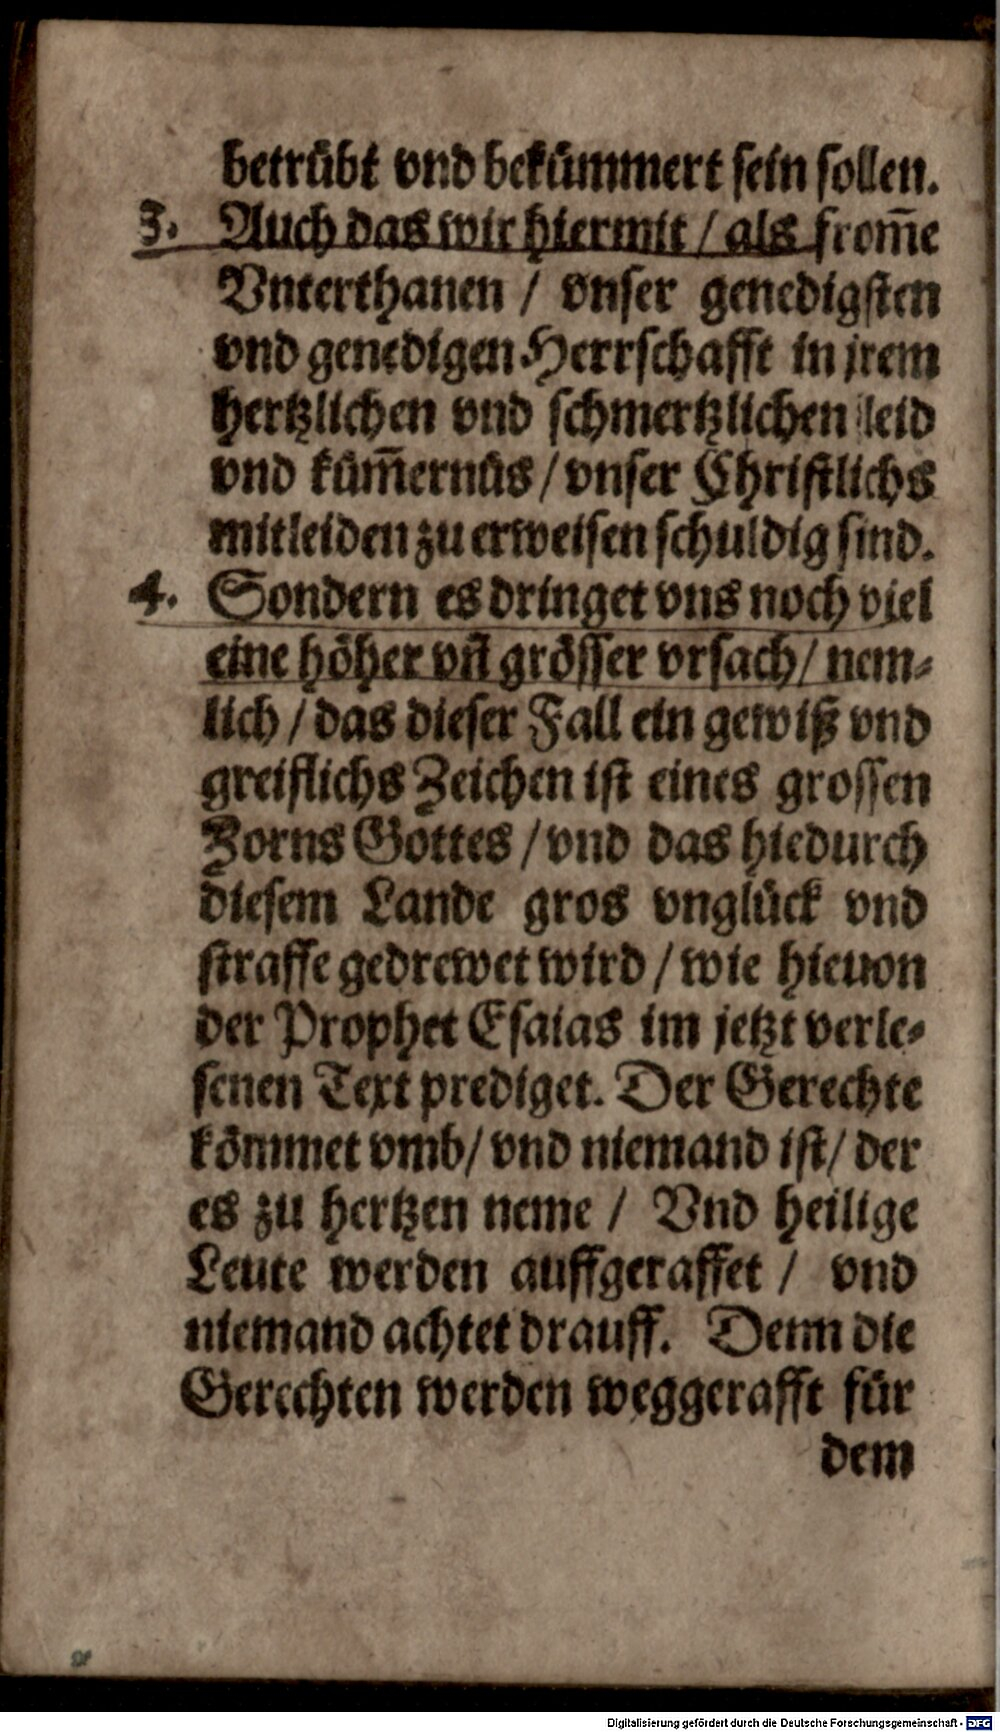 betrübt vnd bekümmert sein sollen.
3. Auch das wir hiermit / als from̃e
Vnterthanen / vnser genedigsten
vnd genedigen Herrschafft in jrem
hertzlichen vnd schmertzlichen leid
vnd küm̃ernüs / vnser Christlichs
mitleiden zu erweisen schuldig sind.
4. Sondern es dringet vns noch viel
eine höher vñ grösser vrsach / nem-
lich / das dieser Fall ein gewiß vnd
greiflichs Zeichen ist eines grossen
Zorns Gottes / vnd das hiedurch
diesem Lande gros vnglück vnd
straffe gedrewet wird / wie hieuon
der Prophet Esaias im jetzt verle-
senen Text prediget. Der Gerechte
kömmet vmb / vnd niemand ist / der
es zu hertzen neme / Vnd heilige
Leute werden auffgeraffet / vnd
niemand achtet drauff. Denn die
Gerechten werden weggerafft für
dem
Digitalisierung gefördert durch die Deutsche Forschungsgemeinschaft - DFG